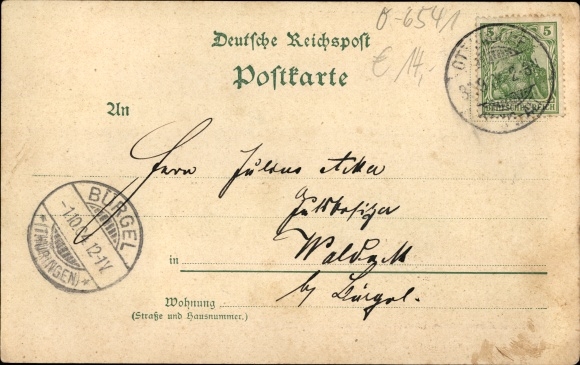 0-6541
€ 14,-
Deutsche Reichspost
Postkarte
5
An
Herrn Julius
Gutsbesitzer
in Waldeck
by Bürgel.
Wohnung
(Straße und Hausnummer.)
BÜRGEL
1.10. 12-1V.
*(THÜRINGEN)*